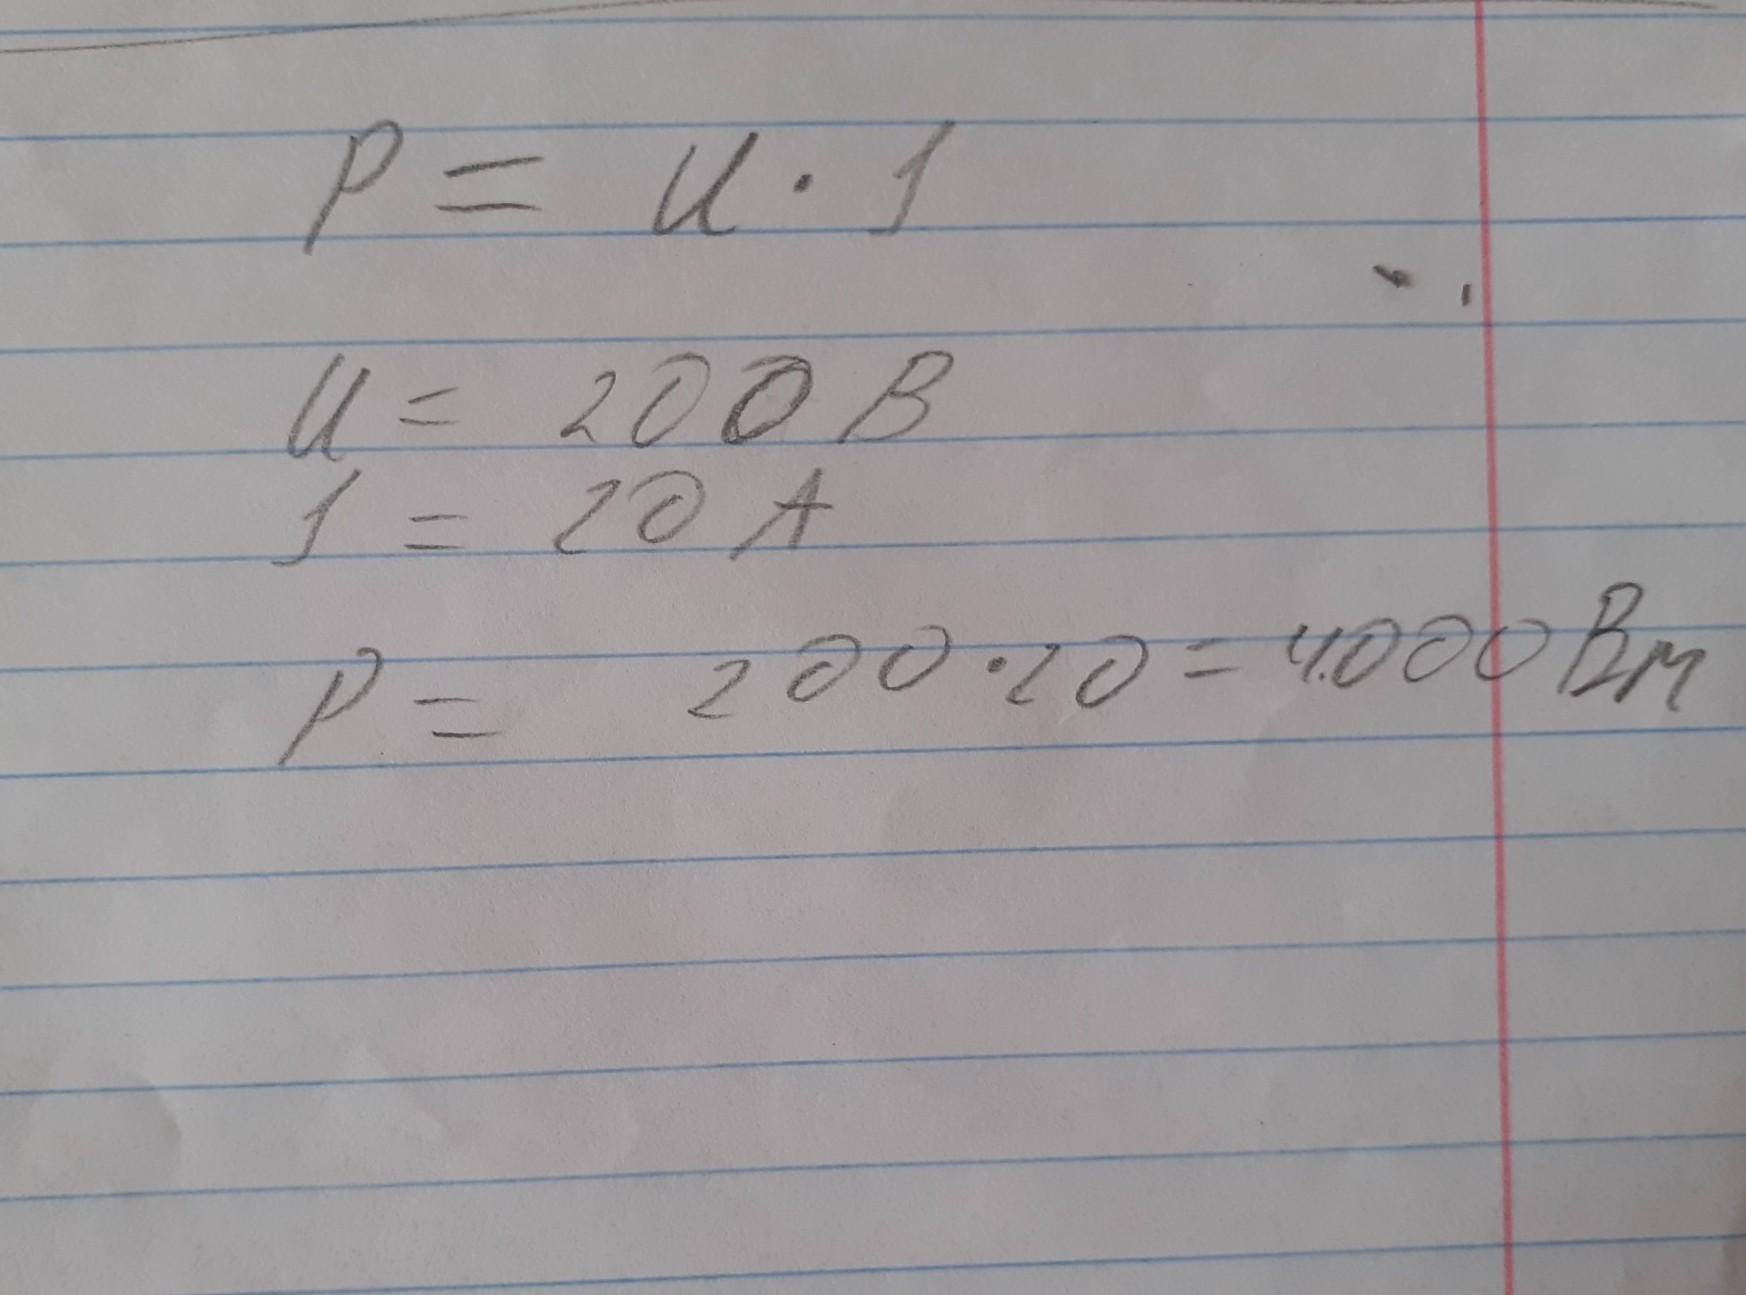 P = U · I
U = 200 В
I = 20 А
P = 200 · 20 = 4000 Вт